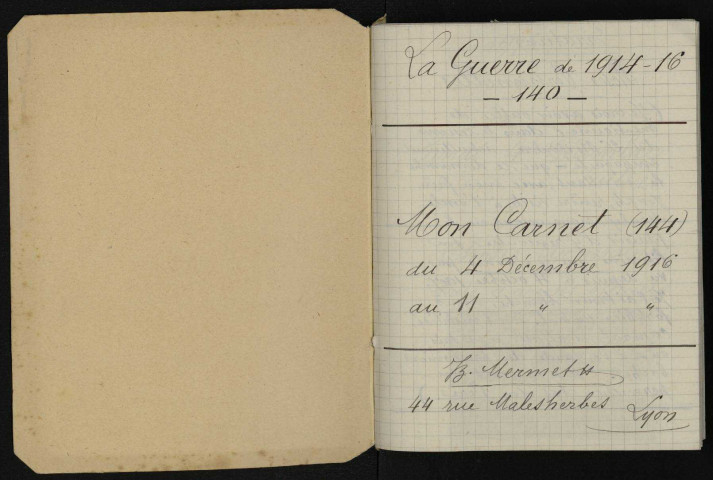 La Guerre de 1914-16
- 140 -
Mon Carnet (144)
du 4 Décembre 1916
au 11 " "
B. Mermet
44 rue Malesherbes
Lyon